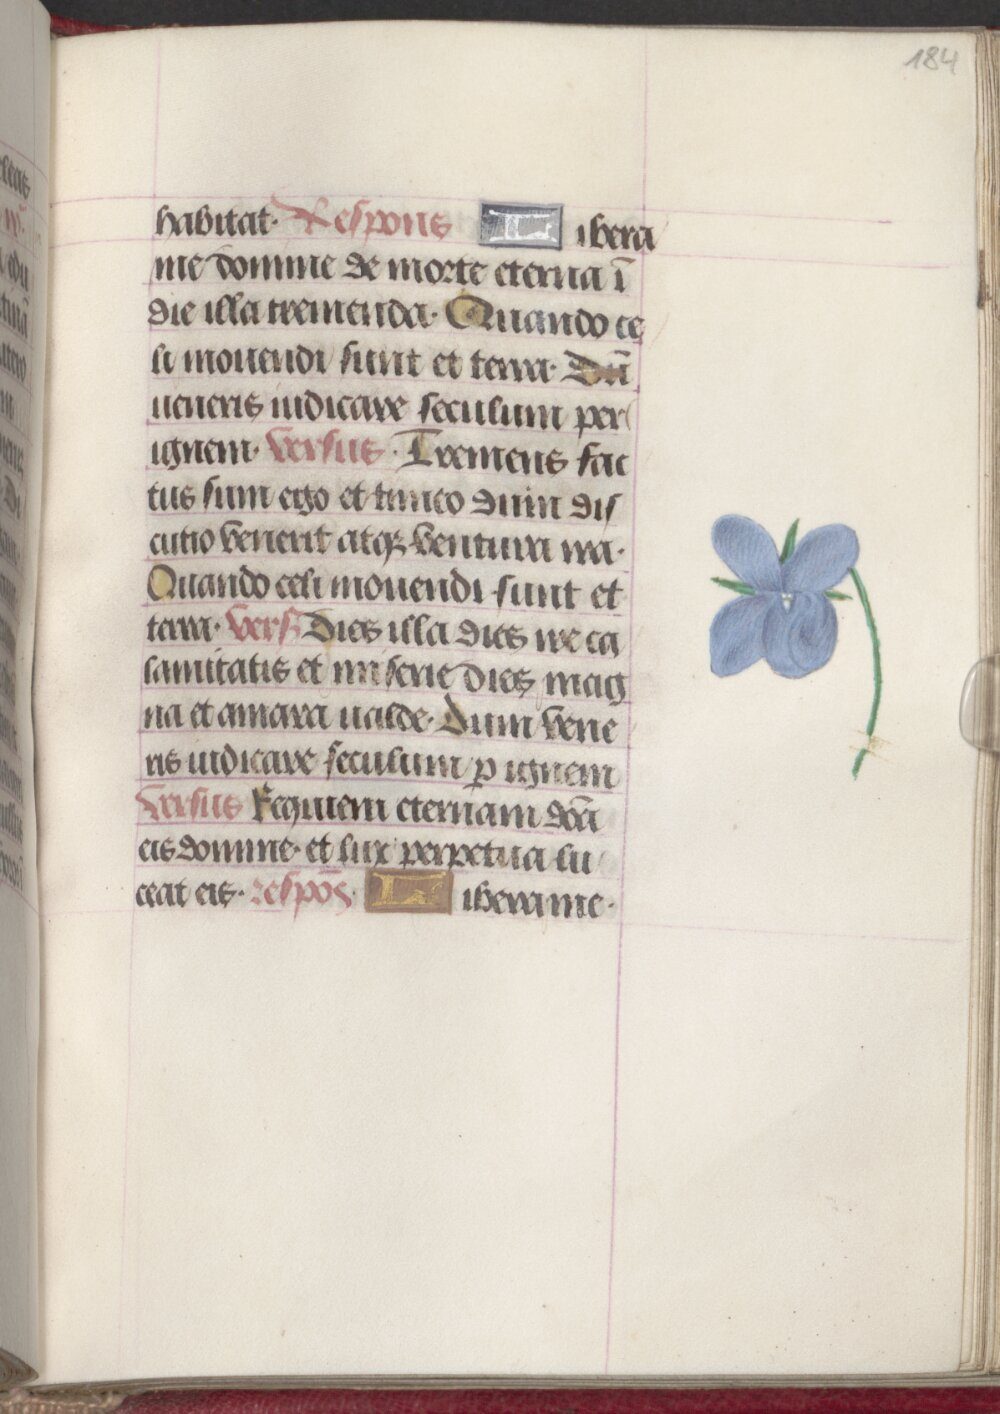 184
habitat. Respons Libera
me domine de morte eterna ī
die illa tremenda. Quando ce
li mouendi sunt et terra. Dū
ueneris iudicare seculum per
ignem. Versus. Tremens fac
tus sum ego et timeo dum dis
cutio venerit atqꝫ ventura ira.
Quando celi mouendi sunt et
terra. Vers Dies illa dies ire ca
lamitatis et miserie dies mag
na et amara ualde. Dum vene
ris iudicare seculum ꝑ ignem
Versus Requiem eternam donā
eis domine. et lux perpetua lu
ceat eis. respōs. Libera me.